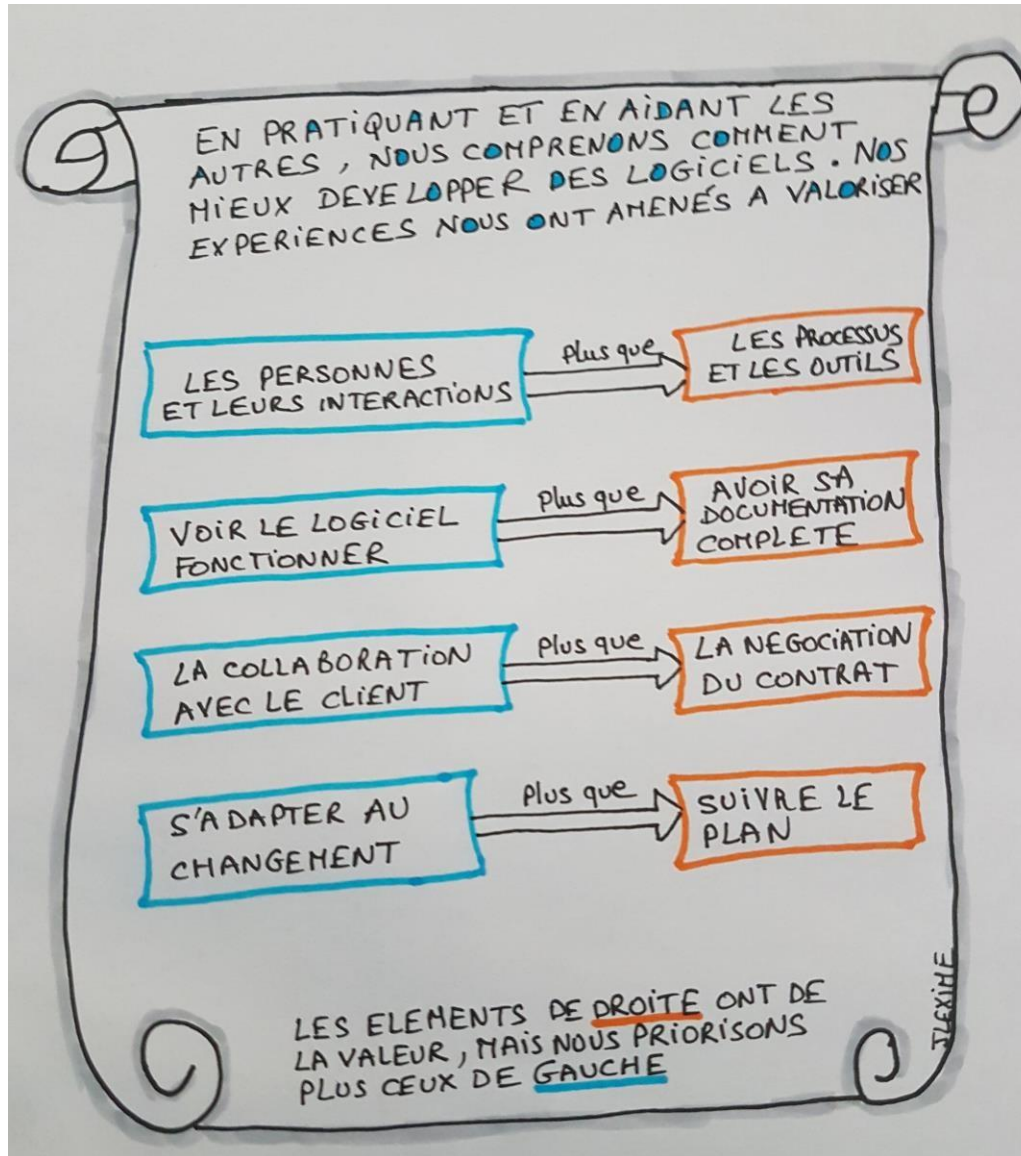 EN PRATIQUANT ET EN AIDANT LES
AUTRES, NOUS COMPRENONS COMMENT
MIEUX DEVELOPPER DES LOGICIELS. NOS
EXPERIENCES NOUS ONT AMENÉS A VALORISER
LES PERSONNES
ET LEURS INTERACTIONS
Plus que
LES PROCESSUS
ET LES OUTILS
VOIR LE LOGICIEL
FONCTIONNER
Plus que
AVOIR SA
DOCUMENTATION
COMPLETE
LA COLLABORATION
AVEC LE CLIENT
Plus que
LA NEGOCIATION
DU CONTRAT
S'ADAPTER AU
CHANGEMENT
Plus que
SUIVRE LE
PLAN
LES ELEMENTS DE DROITE ONT DE
LA VALEUR, MAIS NOUS PRIORISONS
PLUS CEUX DE GAUCHE
JLEXIME